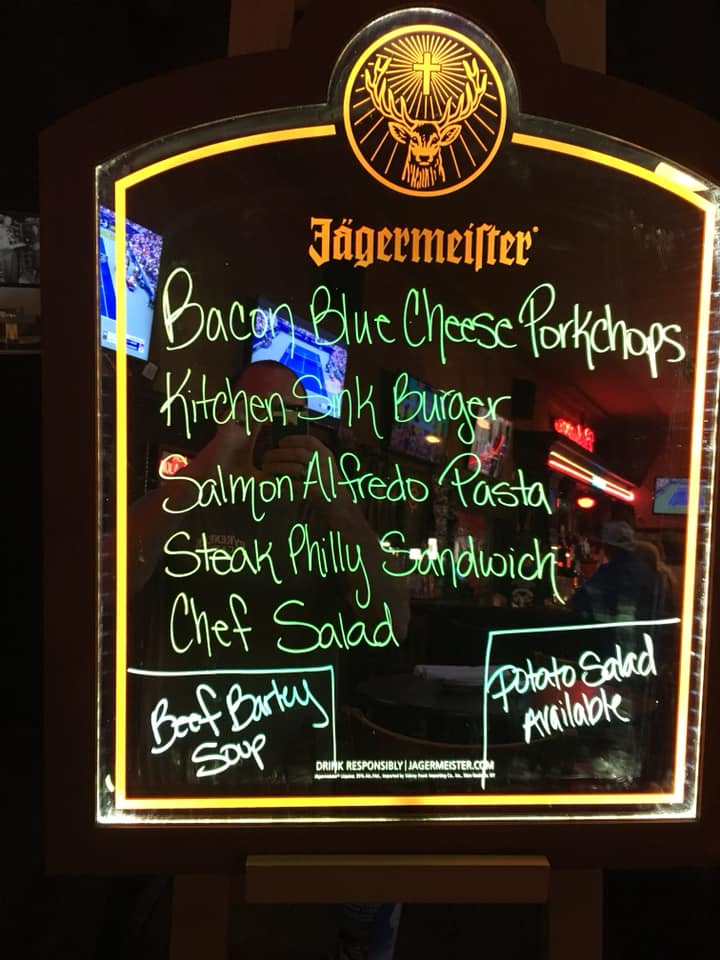 Jägermeister
Bacon Blue Cheese Porkchops
Kitchen Sink Burger
Salmon Alfredo Pasta
Steak Philly Sandwich
Chef Salad
Beef Barley
Soup
Potato Salad
Available
DRINK RESPONSIBLY | JAGERMEISTER.COM